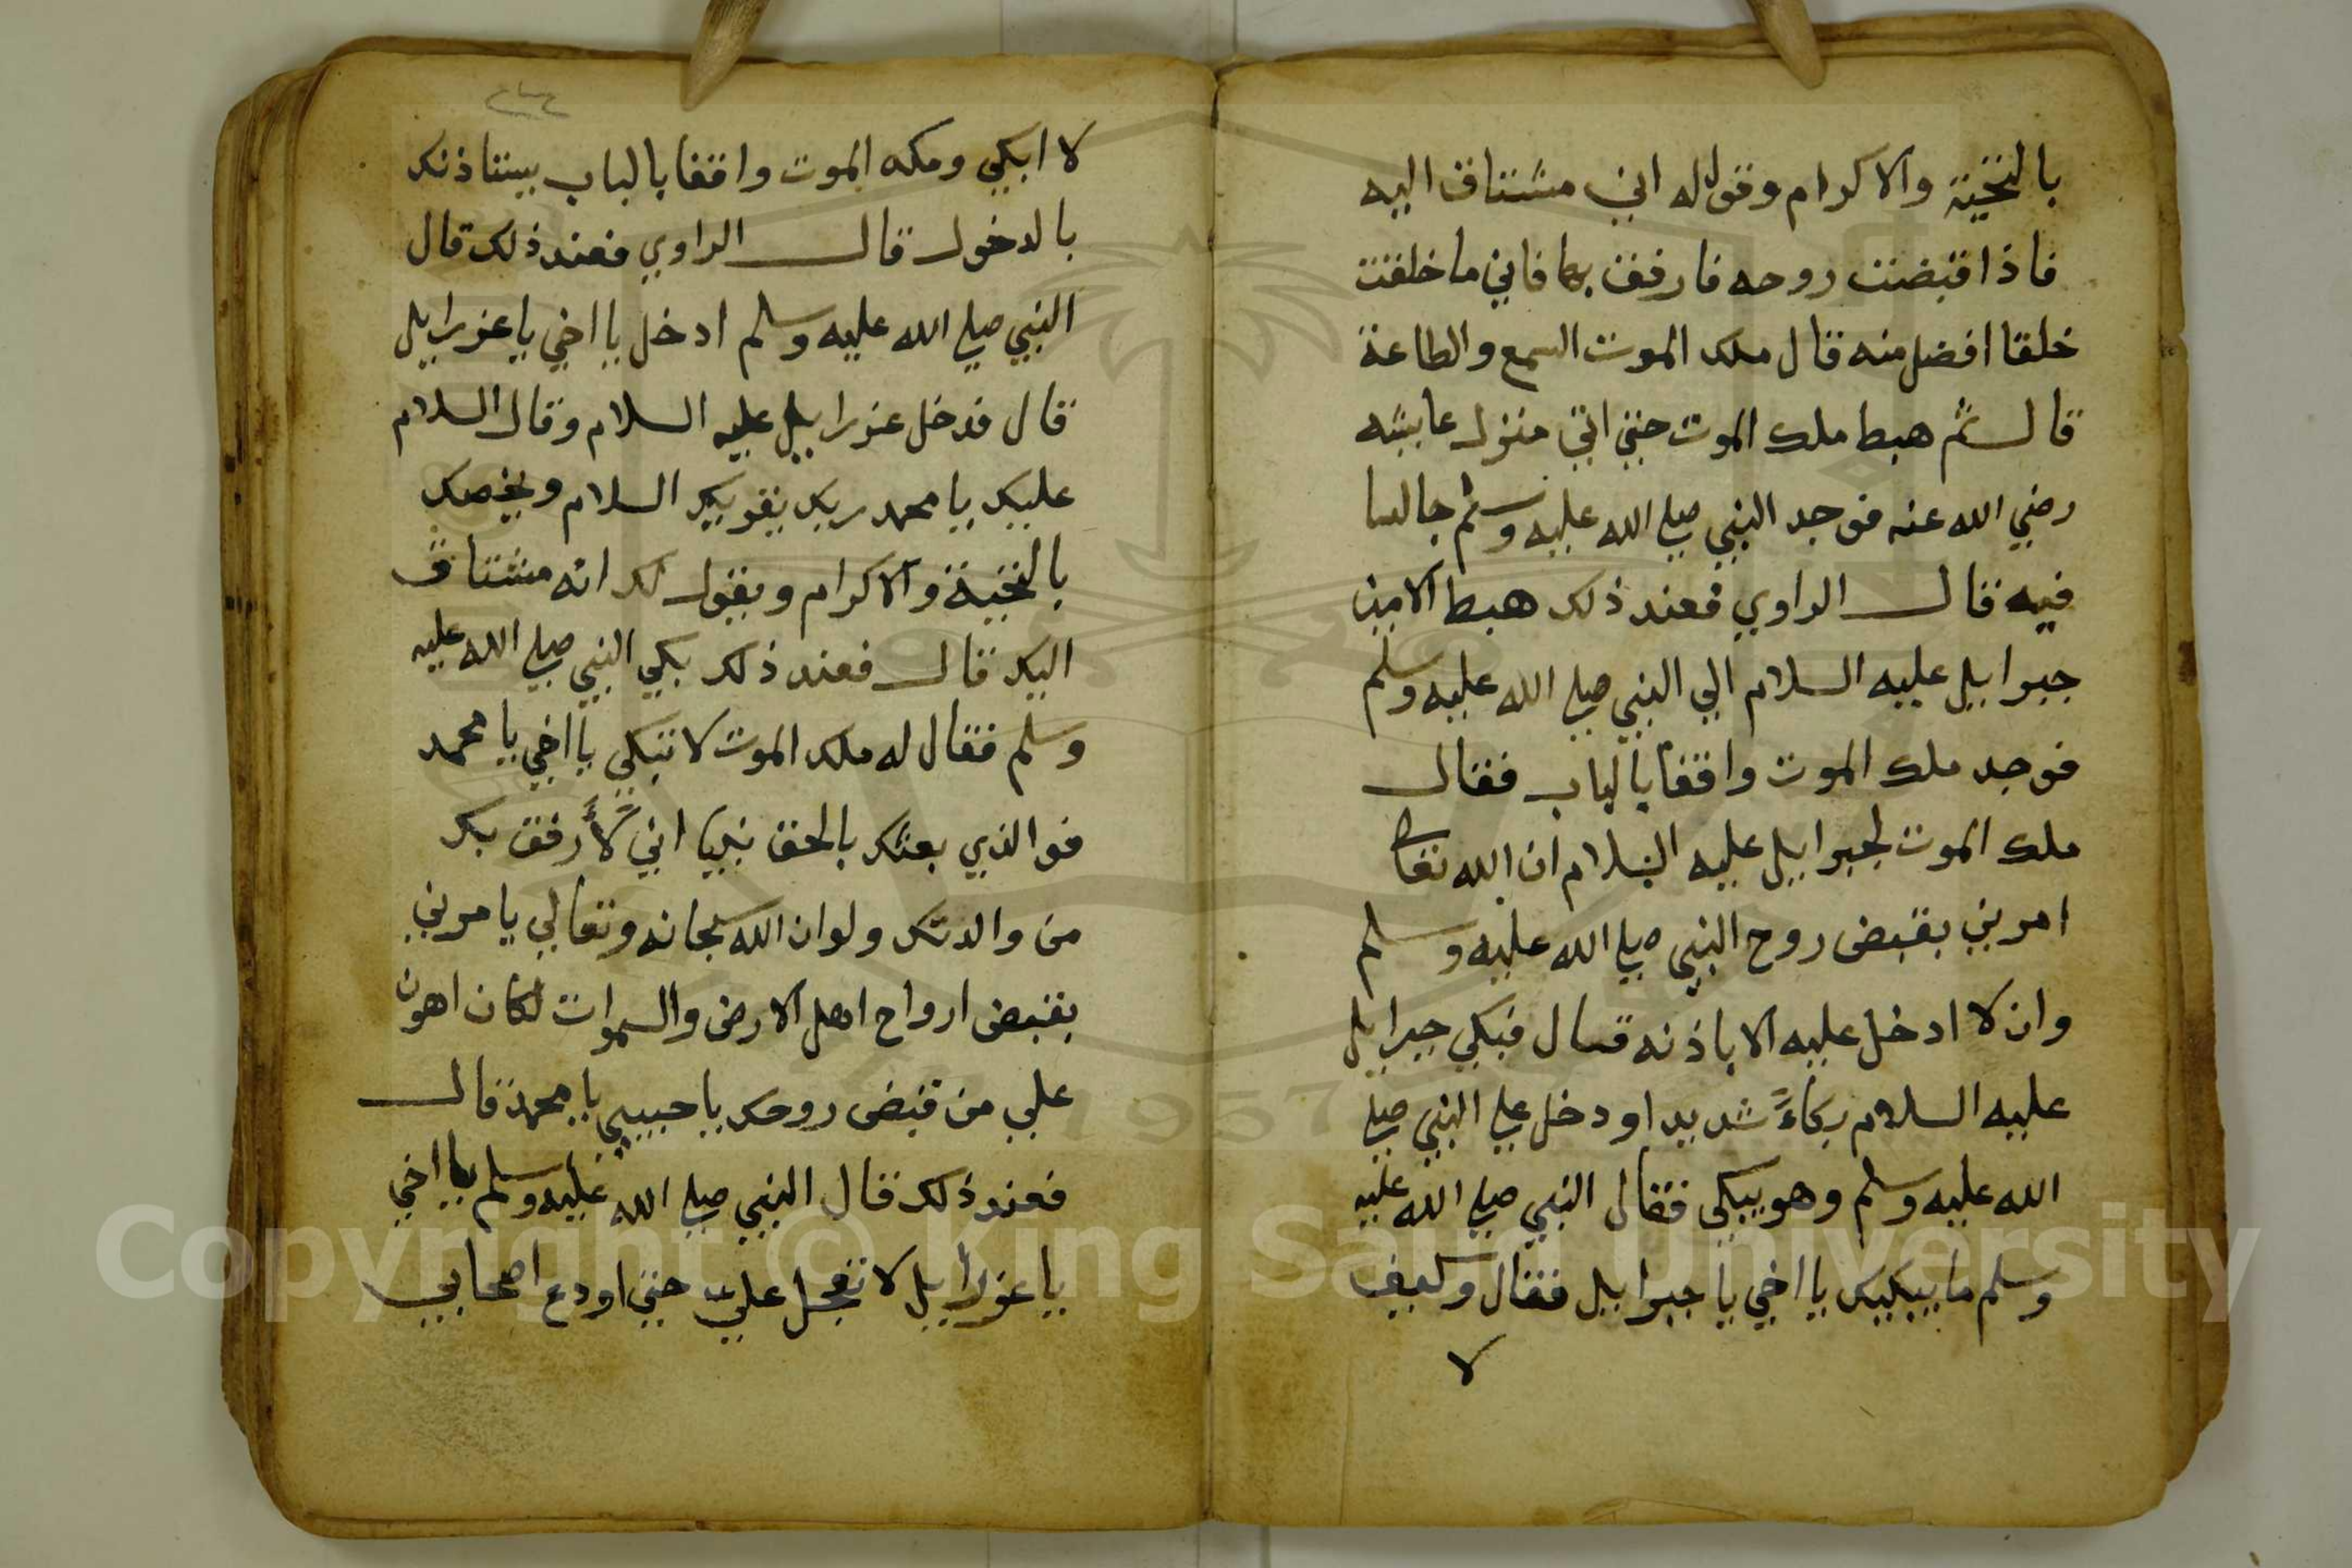 بالتحية والاكرام وقول له اني مشتاق اليه
فاذا قبضت روحه فارفق بها فاني ما خلقت
خلقا افضل منه قال ملك الموت السمع والطاعة
قال ثم هبط ملك الموت حتى اتي منزل عايشه
رضي الله عنه فوجد النبي صلي الله عليه وسلم جالسا
فيه قال الراوي فعند ذلك هبط الامين
جبرايل عليه السلام الي النبي صلي الله عليه وسلم
فوجد ملك الموت واقفا بالباب فقال
ملك الموت لجبرايل عليه السلام ان الله تعالى
امرني بقبض روح النبي صلي الله عليه وسلم
وان لا ادخل عليه الا باذنه قال فبكي جبرايل
عليه السلام بكاءً شديدا ودخل علي النبي صلي
الله عليه وسلم وهو يبكي فقال النبي صلي الله عليه
وسلم ما يبكيك يا اخي يا جبرايل فقال وكيف
لا
لا ابكي وملك الموت واقفا بالباب يستاذنك
بالدخول قال الراوي فعند ذلك قال
النبي صلي الله عليه وسلم ادخل يا اخي يا عزرايل
قال فدخل عزرايل عليه السلام وقال السلام
عليك يا محمد ربك يقريك السلام ويخصك
بالتحية والاكرام ويقول لك انه مشتاق
اليك قال فعند ذلك بكي النبي صلي الله عليه
وسلم فقال له ملك الموت لا تبكي يا اخي يا محمد
فوالذي بعثك بالحق نبيا اني لأرفق بك
من والدتك ولو ان الله سبحانه وتعالي يامرني
بقبض ارواح اهل الارض والسموات لكان اهون
علي من قبض روحك يا حبيبي يا محمد قال
فعند ذلك قال النبي صلي الله عليه وسلم يا اخي
يا عزرايل لا تعجل عليّ حتي اودع اصحابي
Copyright © King Saud University
1957